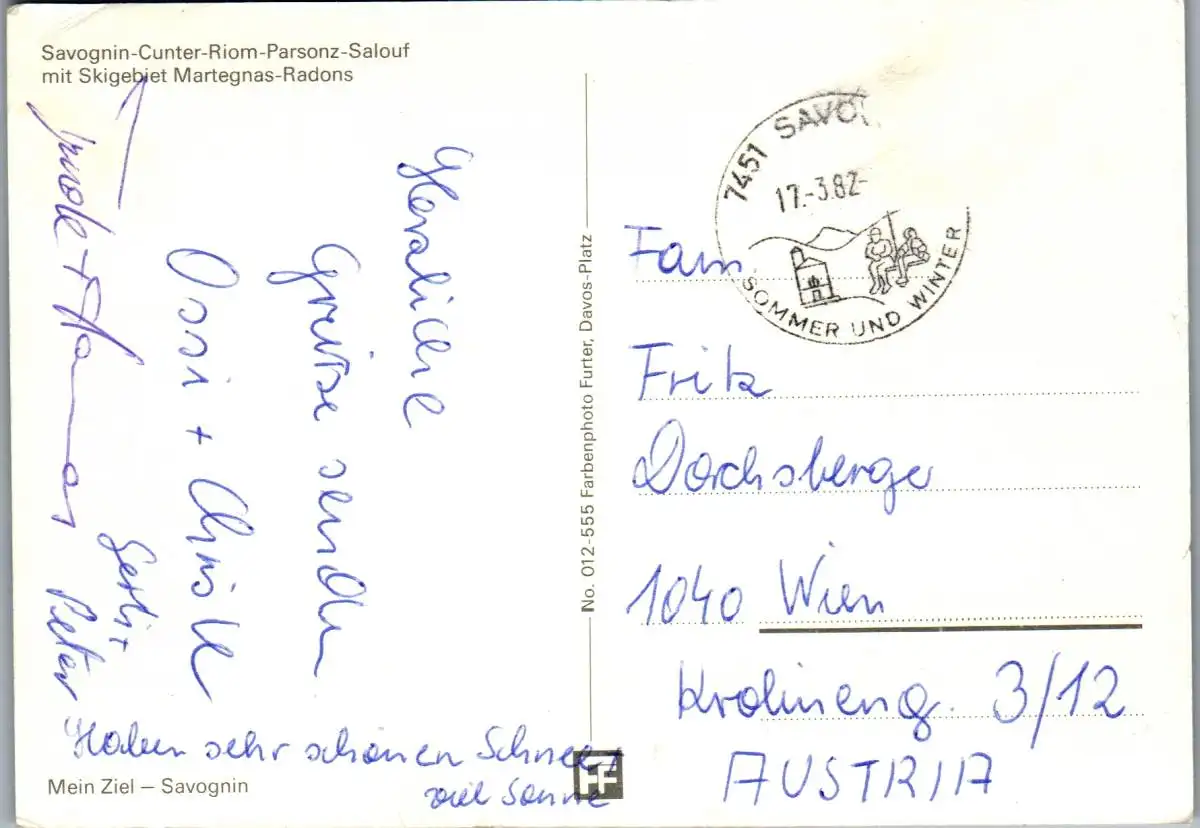 Savognin-Cunter-Riom-Parsonz-Salouf
mit Skigebiet Martegnas-Radons
Herzliche
Grüße senden
Ossi +
+ Hannes
Gerti +
Peter
Haben sehr schönen Schnee +
viel Sonne
Mein Ziel – Savognin
No. 012-555 Farbenphoto Furter, Davos-Platz
FF
7451 SAVO
17.-3.82-
SOMMER UND WINTER
Fam.
Fritz
Dachsberger
1040 Wien
3/12
AUSTRIA